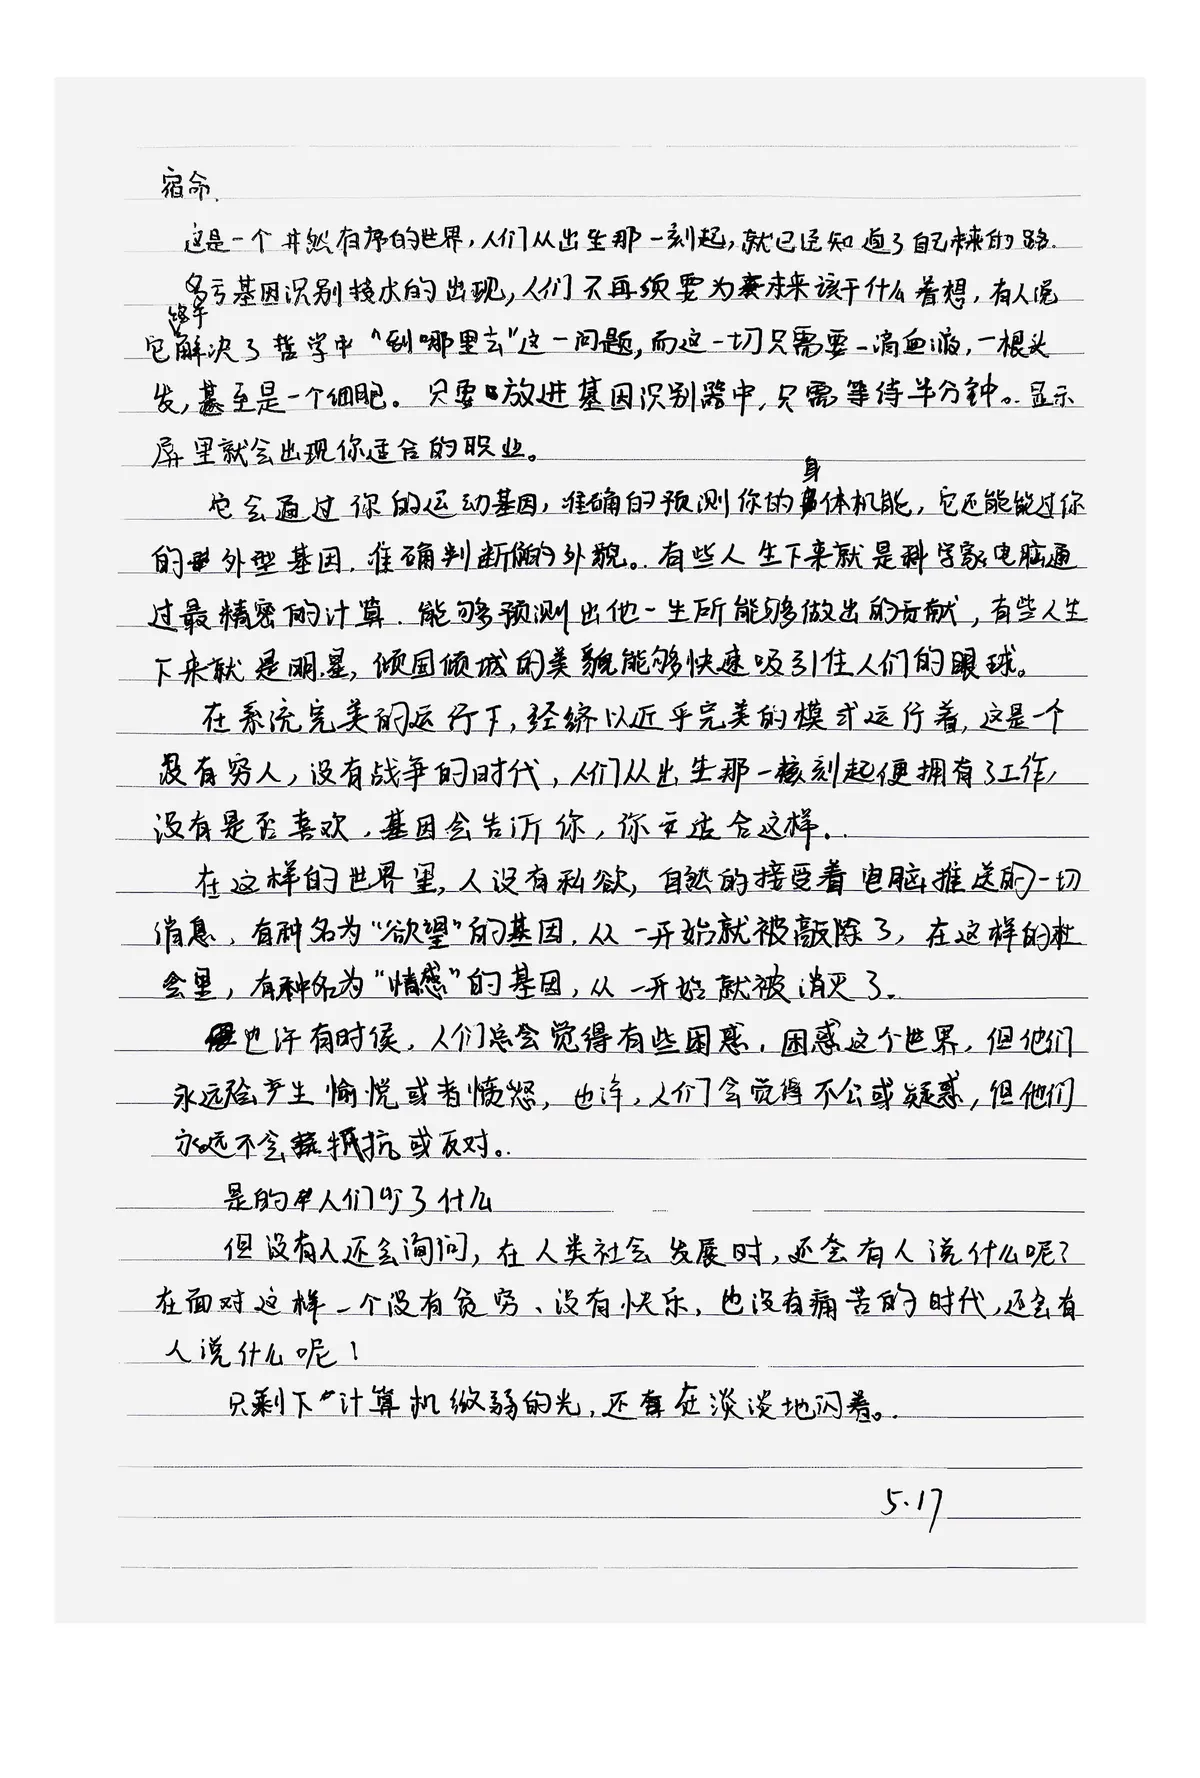 宿命.
这是一个井然有序的世界,人们从出生那一刻起,就已经知道了自己未来的路.
多亏基因识别技术的出现,人们不再须要为未来该干什么着想,有人说
它终于解决了哲学中“到哪里去”这一问题,而这一切只需要一滴血液,一根头
发,甚至是一个细胞。只要放进基因识别器中,只需等待半分钟。显示
屏里就会出现你适合的职业。
它会通过你的运动基因,准确的预测你的身体机能,它还能能过你
的外型基因,准确判断你的外貌。有些人生下来就是科学家,电脑通
过最精密的计算.能够预测出他一生所能够做出的贡献,有些人生
下来就是明星,倾国倾城的美貌能够快速吸引住人们的眼球。
在系统完美的运行下,经济以近乎完美的模式运行着,这是一个
没有穷人,没有战争的时代,人们从出生那一刻起便拥有了工作,
没有是否喜欢,基因会告诉你,你适合这样.
在这样的世界里,人没有私欲,自然的接受着电脑推送的一切
消息,有种名为“欲望”的基因,从一开始就被敲除了,在这样的社
会里,有种名为“情感”的基因,从一开始就被消灭了.
也许有时候,人们总会觉得有些困惑,困惑这个世界,但他们
永远产生愉悦或者愤怒,也许,人们会觉得不公或疑惑,但他们
永远不会抵抗或反对。
是的人们少了什么
但没有人还会询问,在人类社会发展时,还会有人说什么呢?
在面对这样一个没有贫穷、没有快乐,也没有痛苦的时代,还会有
人说什么呢!
只剩下计算机微弱的光,还在淡淡地闪着。
5.17